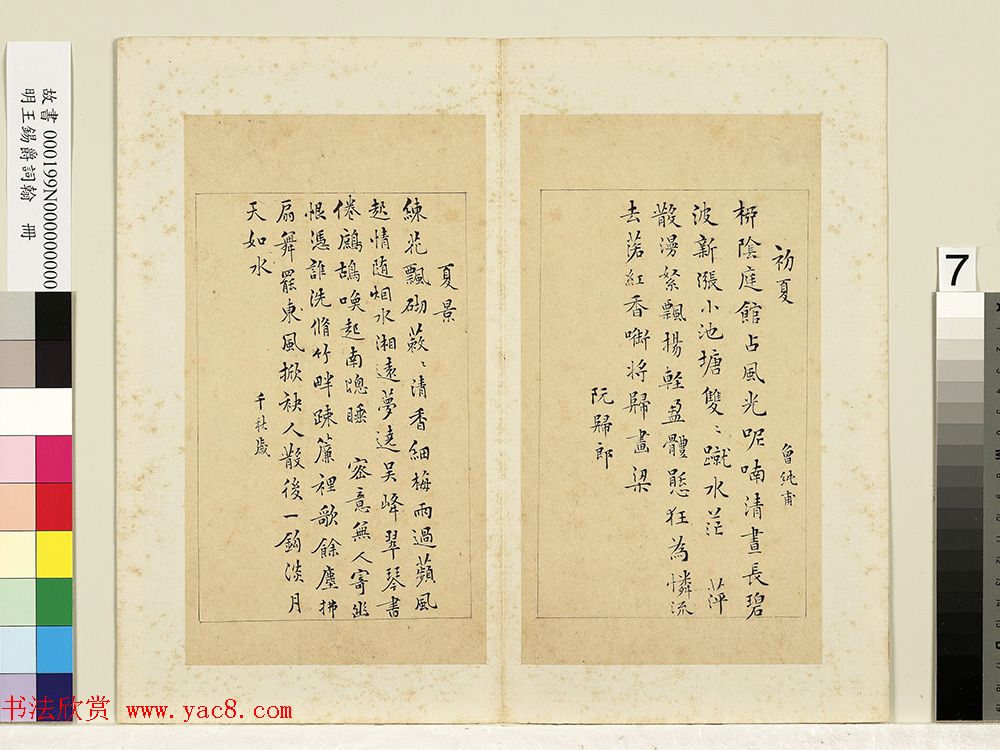 初夏
曾純甫
桺陰庭館占風光呢喃清晝長碧
波新漲小池塘雙〻蹴水茫 萍
散漫絮飄揚輕盈體態狂為憐流
去落紅香啣将歸畫梁
阮歸郎
夏景
練花飄砌蔌〻清香細梅雨過蘋風
起情随烟水湘遠夢遶吳峰翠琴書
倦鷓鴣喚起南牕睡 密意無人寄幽
恨憑誰洗脩竹畔疎簾裡歌餘塵拂
扇舞罷東風掀袂人散後一鈎淡月
天如水
千秋歲
故書 000199N000000000
明王錫爵詞翰 冊
7
书法欣赏 www.yac8.com